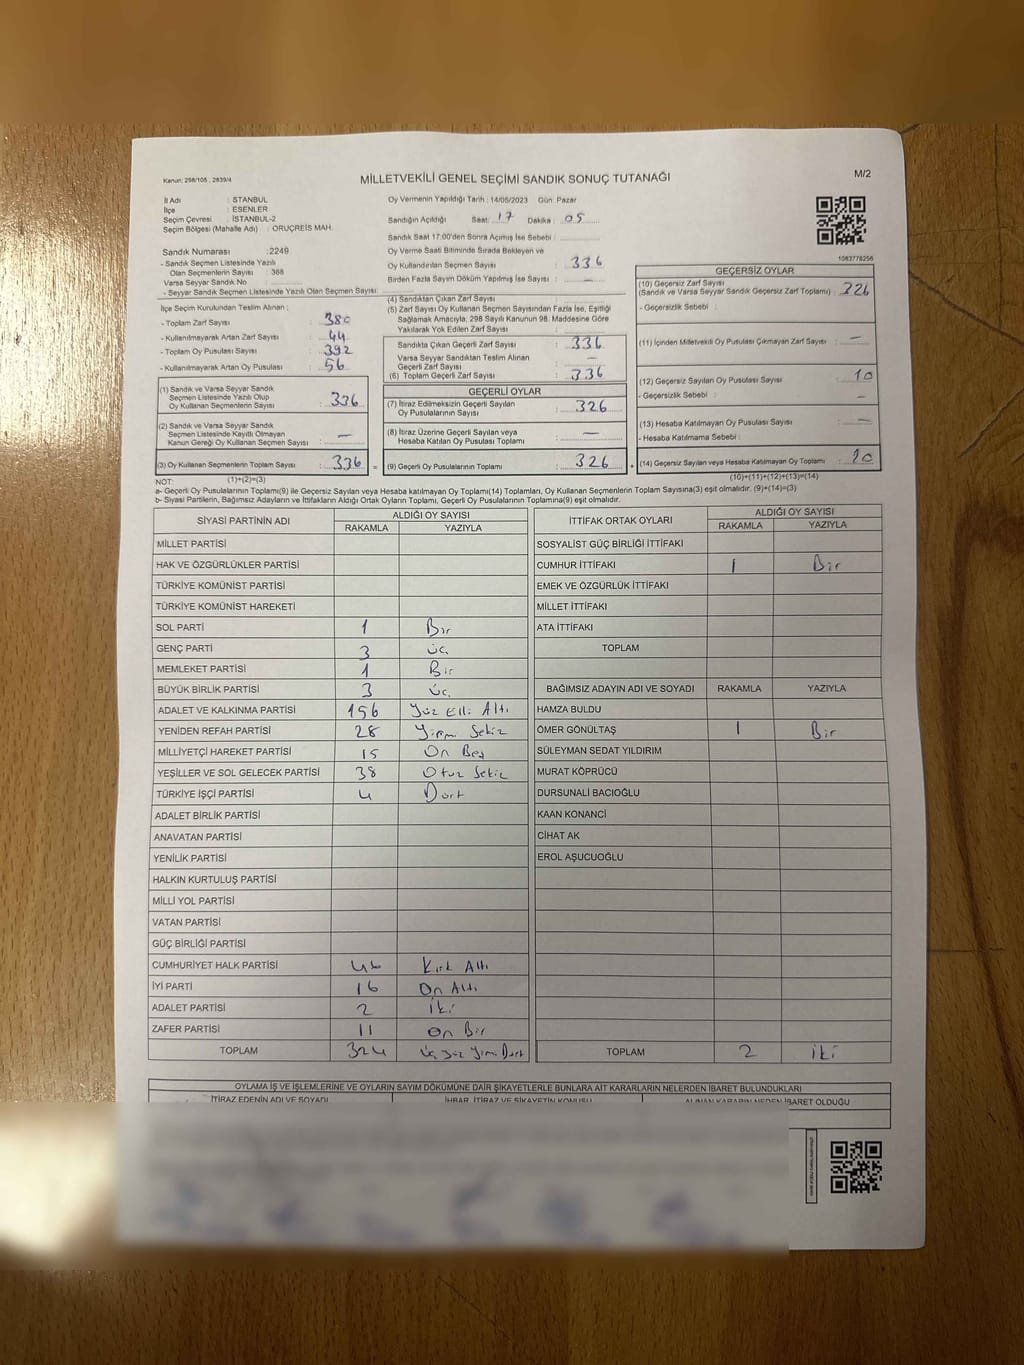 Kanun: 298/105 , 2839/4
MİLLETVEKİLİ GENEL SEÇİMİ SANDIK SONUÇ TUTANAĞI
M/2
İl Adı : STANBUL
İlçe : ESENLER
Seçim Çevresi : İSTANBUL-2
Seçim Bölgesi (Mahalle Adı) : ORUÇREİS MAH.
Sandık Numarası :2249
- Sandık Seçmen Listesinde Yazılı
Olan Seçmenlerin Sayısı : 368
Varsa Seyyar Sandık No :
- Seyyar Sandık Seçmen Listesinde Yazılı Olan Seçmen Sayısı:
İlçe Seçim Kurulundan Teslim Alınan ;
- Toplam Zarf Sayısı : 380
- Kullanılmayarak Artan Zarf Sayısı : 44
- Toplam Oy Pusulası Sayısı : 392
- Kullanılmayarak Artan Oy Pusulası : 56
(1) Sandık ve Varsa Seyyar Sandık
Seçmen Listesinde Yazılı Olup
Oy Kullanan Seçmenlerin Sayısı : 336
(2) Sandık ve Varsa Seyyar Sandık
Seçmen Listesinde Kayıtlı Olmayan
Kanun Gereği Oy Kullanan Seçmen Sayısı : —
(3) Oy Kullanan Seçmenlerin Toplam Sayısı : 336 =
(1)+(2)=(3)
Oy Vermenin Yapıldığı Tarih : 14/05/2023 Gün: Pazar
Sandığın Açıldığı Saat: 17 Dakika : 05
Sandık Saat 17:00'den Sonra Açımış İse Sebebi :
Oy Verme Saati Bitiminde Sırada Bekleyen ve
Oy Kullandırılan Seçmen Sayısı : 336
Birden Fazla Sayım Döküm Yapılmış İse Sayısı : —
(4) Sandıktan Çıkan Zarf Sayısı :
(5) Zarf Sayısı Oy Kullanan Seçmen Sayısından Fazla İse, Eşitliği
Sağlamak Amacıyla, 298 Sayılı Kanunun 98. Maddesine Göre
Yakılarak Yok Edilen Zarf Sayısı :
Sandıkta Çıkan Geçerli Zarf Sayısı : 336
Varsa Seyyar Sandıktan Teslim Alınan
Geçerli Zarf Sayısı : —
(6) Toplam Geçerli Zarf Sayısı : 336
GEÇERLİ OYLAR
(7) İtiraz Edilmeksizin Geçerli Sayılan
Oy Pusulalarının Sayısı : 326
(8) İtiraz Üzerine Geçerli Sayılan veya
Hesaba Katılan Oy Pusulası Toplamı : —
(9) Geçerli Oy Pusulalarının Toplamı : 326 +
1083778256
GEÇERSİZ OYLAR
(10) Geçersiz Zarf Sayısı
(Sandık ve Varsa Seyyar Sandık Geçersiz Zarf Toplamı) :
- Geçersizlik Sebebi :
(11) İçinden Milletvekili Oy Pusulası Çıkmayan Zarf Sayısı : —
(12) Geçersiz Sayılan Oy Pusulası Sayısı : 10
- Geçersizlik Sebebi : —
(13) Hesaba Katılmayan Oy Pusulası Sayısı : —
- Hesaba Katılmama Sebebi :
(14) Geçersiz Sayılan veya Hesaba Katılmayan Oy Toplamı :
(10)+(11)+(12)+(13)=(14)
NOT:
a- Geçerli Oy Pusulalarının Toplamı(9) ile Geçersiz Sayılan veya Hesaba katılmayan Oy Toplamı(14) Toplamları, Oy Kullanan Seçmenlerin Toplam Sayısına(3) eşit olmalıdır. (9)+(14)=(3)
b- Siyasi Partilerin, Bağımsız Adayların ve İttifakların Aldığı Ortak Oyların Toplamı, Geçerli Oy Pusulalarının Toplamına(9) eşit olmalıdır.
SİYASİ PARTİNİN ADI ALDIĞI OY SAYISI
RAKAMLA YAZIYLA
MİLLET PARTİSİ
HAK VE ÖZGÜRLÜKLER PARTİSİ
TÜRKİYE KOMÜNİST PARTİSİ
TÜRKİYE KOMÜNİST HAREKETİ
SOL PARTİ 1 Bir
GENÇ PARTİ 3 üç
MEMLEKET PARTİSİ 1 Bir
BÜYÜK BİRLİK PARTİSİ 3 üç
ADALET VE KALKINMA PARTİSİ 156 Yüz Elli Altı
YENİDEN REFAH PARTİSİ 28 Yirmi Sekiz
MİLLİYETÇİ HAREKET PARTİSİ 15 On Beş
YEŞİLLER VE SOL GELECEK PARTİSİ 38 Otuz Sekiz
TÜRKİYE İŞÇİ PARTİSİ 4 Dört
ADALET BİRLİK PARTİSİ
ANAVATAN PARTİSİ
YENİLİK PARTİSİ
HALKIN KURTULUŞ PARTİSİ
MİLLİ YOL PARTİSİ
VATAN PARTİSİ
GÜÇ BİRLİĞİ PARTİSİ
CUMHURİYET HALK PARTİSİ 46 Kırk Altı
İYİ PARTİ 16 On Altı
ADALET PARTİSİ 2 İki
ZAFER PARTİSİ 11 On Bir
TOPLAM 324 Üç yüz Yirmi Dört
İTTİFAK ORTAK OYLARI ALDIĞI OY SAYISI
RAKAMLA YAZIYLA
SOSYALİST GÜÇ BİRLİĞİ İTTİFAKI
CUMHUR İTTİFAKI 1 Bir
EMEK VE ÖZGÜRLÜK İTTİFAKI
MİLLET İTTİFAKI
ATA İTTİFAKI
TOPLAM
BAĞIMSIZ ADAYIN ADI VE SOYADI RAKAMLA YAZIYLA
HAMZA BULDU
ÖMER GÖNÜLTAŞ 1 Bir
SÜLEYMAN SEDAT YILDIRIM
MURAT KÖPRÜCÜ
DURSUNALİ BACIOĞLU
KAAN KONANCİ
CİHAT AK
EROL AŞUCUOĞLU
TOPLAM 2 İki
OYLAMA İŞ VE İŞLEMLERİNE VE OYLARIN SAYIM DÖKÜMÜNE DAİR ŞİKAYETLERLE BUNLARA AİT KARARLARIN NELERDEN İBARET BULUNDUKLARI
İTİRAZ EDENİN ADI VE SOYADI İHBAR, İTİRAZ VE ŞİKAYETİN KONUSU ALINAN KARARIN NEDEN İBARET OLDUĞU